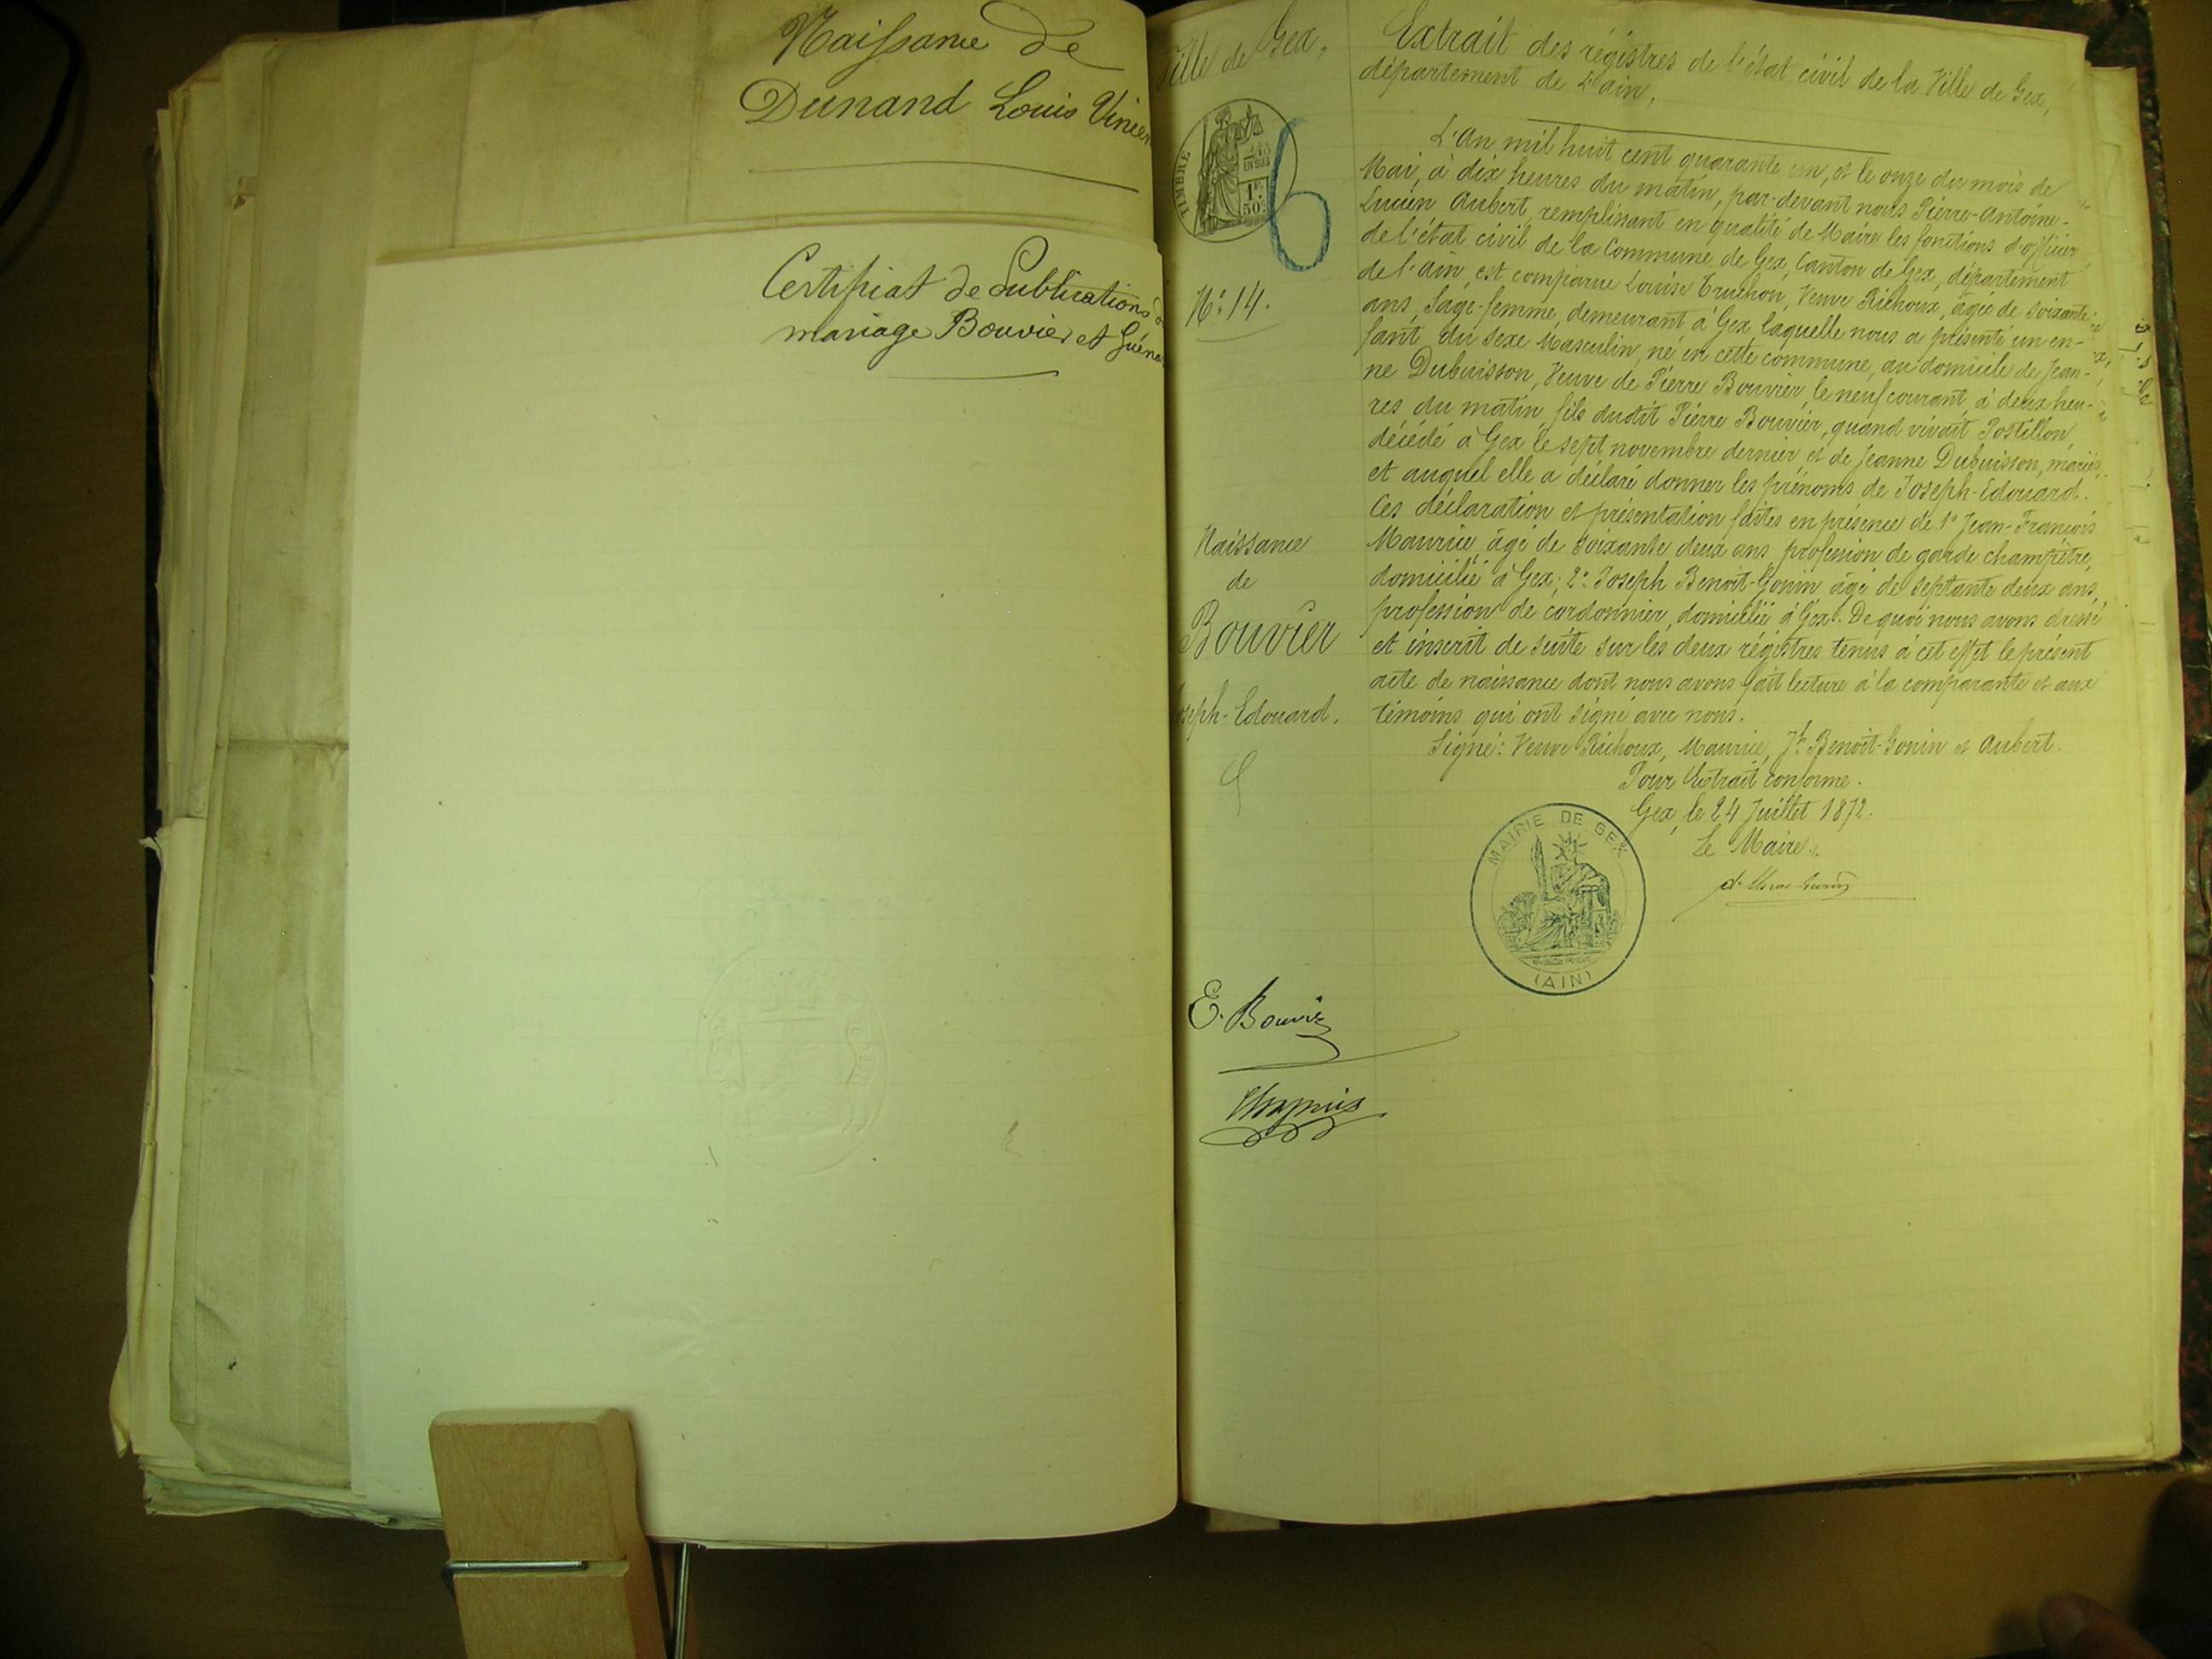 Naissance de
Dunand Louis Vincen
Certificat de Publications de
mariage Bouvier et Guéna
Ville de Gex,
TIMBRE
2/10
EN SUS
1F.
50c.
6
N°: 14.
Naissance
de
Bouvier
oseph-Edouard.
E. Bouvier
Chapuis
Extrait des régistres de l'état civil de la Ville de Gex,
département de L'ain,
L'An mil huit cent quarante un, et le onze du mois de
Mai, à dix heures du matin, par-devant nous Pierre-Antoine-
Lucien Aubert, remplissant en qualité de Maire les fonctions d'officier
de l'état civil de la Commune de Gex, Canton de Gex, département
de l'Ain, est comparue Louise Truchon, Veuve Richoux, âgée de soixante
ans, Sage-femme, demeurant à Gex, laquelle nous a présenté un en-
fant du sexe Masculin, né en cette commune, au domicile de Jean-
ne Dubuisson, Veuve de Pierre Bouvier, le neuf courant, à deux heu-
res du matin, fils dudit Pierre Bouvier, quand vivait Postillon,
décédé à Gex le sept novembre dernier et de Jeanne Dubuisson, mariés,
et auquel elle a déclaré donner les prénoms de Joseph-Edouard.
Ces déclaration et présentation faites en présence de 1° Jean-François
Maurice, âgé de soixante deux ans, profession de garde champêtre,
domicilié à Gex; 2° Joseph Benoît-Gonin âgé de septante deux ans,
profession de cordonnier, domicilié à Gex. De quoi nous avons dressé
et inscrit de suite sur les deux régistres tenus à cet effet le présent
acte de naissance dont nous avons fait lecture à la comparante et aux
témoins qui ont signé avec nous.
Signé: Veuve Richoux, Maurice, Jh Benoît-Gonin et Aubert.
Pour Extrait conforme.
Gex, le 24 Juillet 1872.
Le Maire.
MAIRIE DE GEX
(AIN)